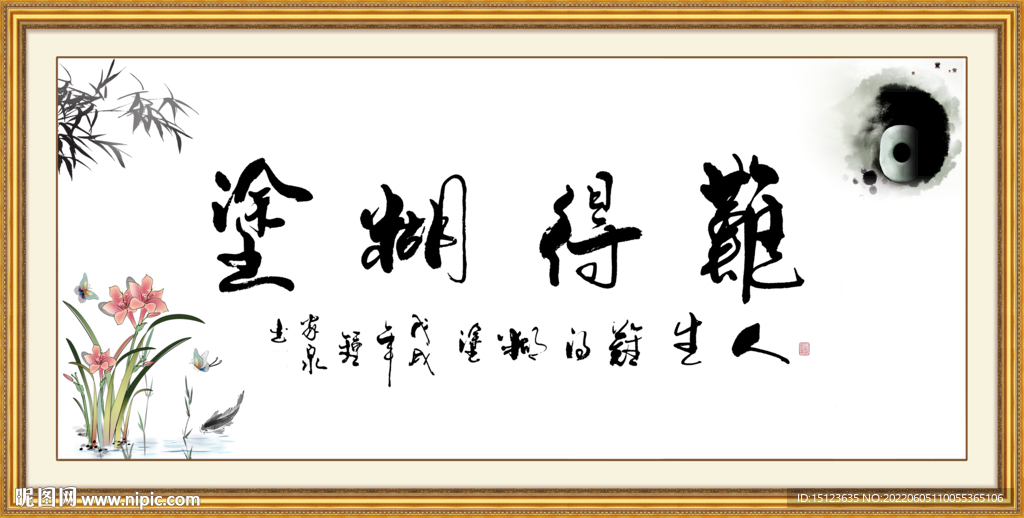 難得糊塗
人生難得糊塗戊戌年鐘家泉書
昵图网 www.nipic.com
ID:15123635 NO:20220605110055365106